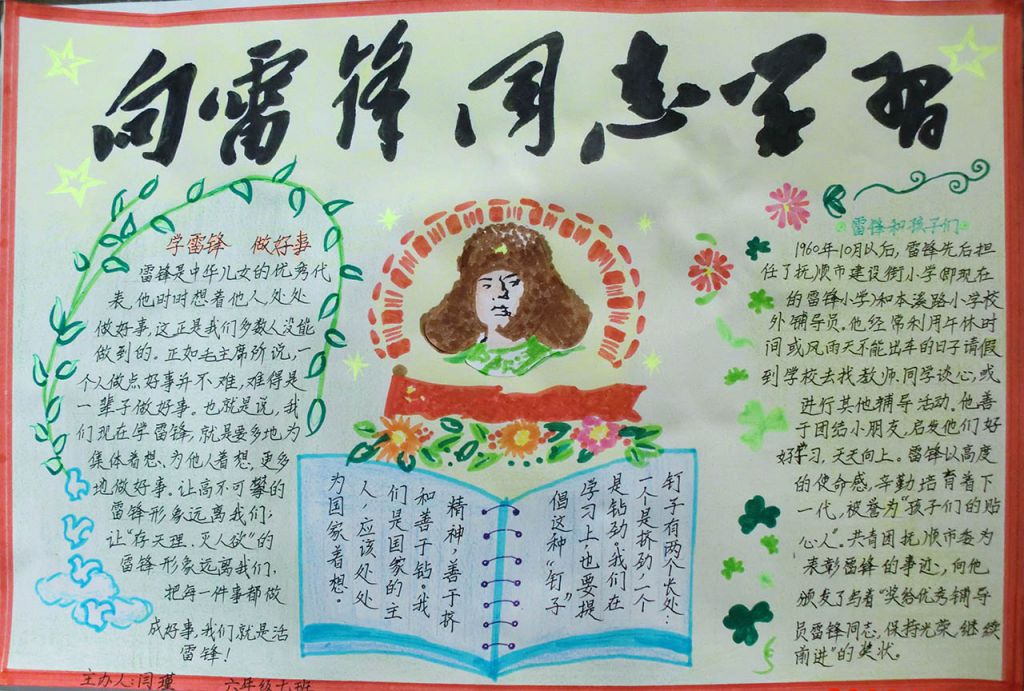 向雷锋同志学习
学雷锋 做好事
雷锋是中华儿女的优秀代
表,他时时想着他人,处处
做好事,这正是我们多数人没能
做到的。正如毛主席所说,一
个人做点好事并不难,难得是
一辈子做好事。也就是说,我
们现在学雷锋,就是要多地为
集体着想、为他人着想,更多
地做好事。让高不可攀的
雷锋形象远离我们;
让“存天理、灭人欲”的
雷锋形象远离我们.
把每一件事都做
成好事,我们就是活
雷锋!
主办人:闫瑾 六年级七班
钉子有两个长处:
一个是挤劲,一个
是钻劲,我们在
学习上,也要提
倡这种“钉子”
精神,善于挤
和善于钻。我
们是国家的主
人,应该处处
为国家着想。
雷锋和孩子们
1960年10月以后,雷锋先后担
任了抚顺市建设街小学(即现在
的雷锋小学)和本溪路小学校
外辅导员.他经常利用午休时
间或风雨天不能出车的日子请假
到学校去找教师.同学谈心,或
进行其他辅导活动。他善
于团结小朋友,启发他们好
好学习,天天向上。雷锋以高度
的使命感,辛勤培育着下
一代,被誉为“孩子们的贴
心人”。共青团抚顺市委为
表彰雷锋的事迹,向他
颁发了写着“奖给优秀辅导
员雷锋同志,保持光荣,继续
前进”的奖状。